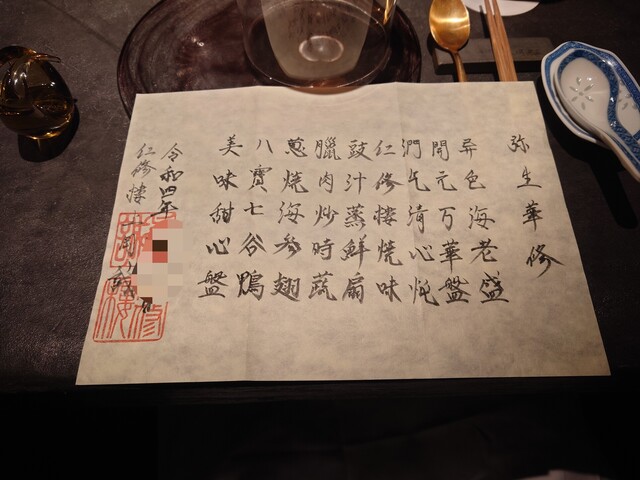 弥生華修
异色海老盛
開元万華盤
清心炖
仁修楼焼味
豉汁蒸鮮扇
臘肉炒時蔬
葱焼海参翅
八寶七谷鴨
美味甜心盤
令和四年
仁修樓